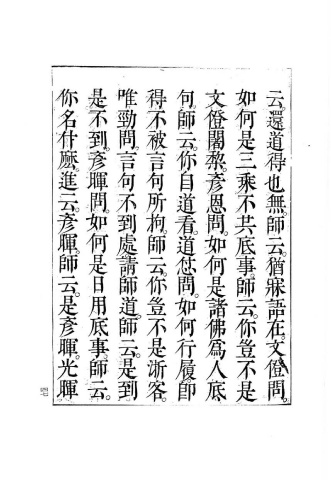 云。還道得也無。師云。猶寐語在。文僜問。
如何是三乘不共底事。師云。你豈不是
文僜闍黎。彥恩問。如何是諸佛爲人底
句。師云。你自道看道恁問。如何行履。即
得不被言句所拘。師云。你豈不是浙客。
唯勁問。言句不到處。請師道。師云。是到
是不到。彥暉問。如何是日用底事。師云。
你名什麽。進云。彥暉。師云。是彥暉。光暉